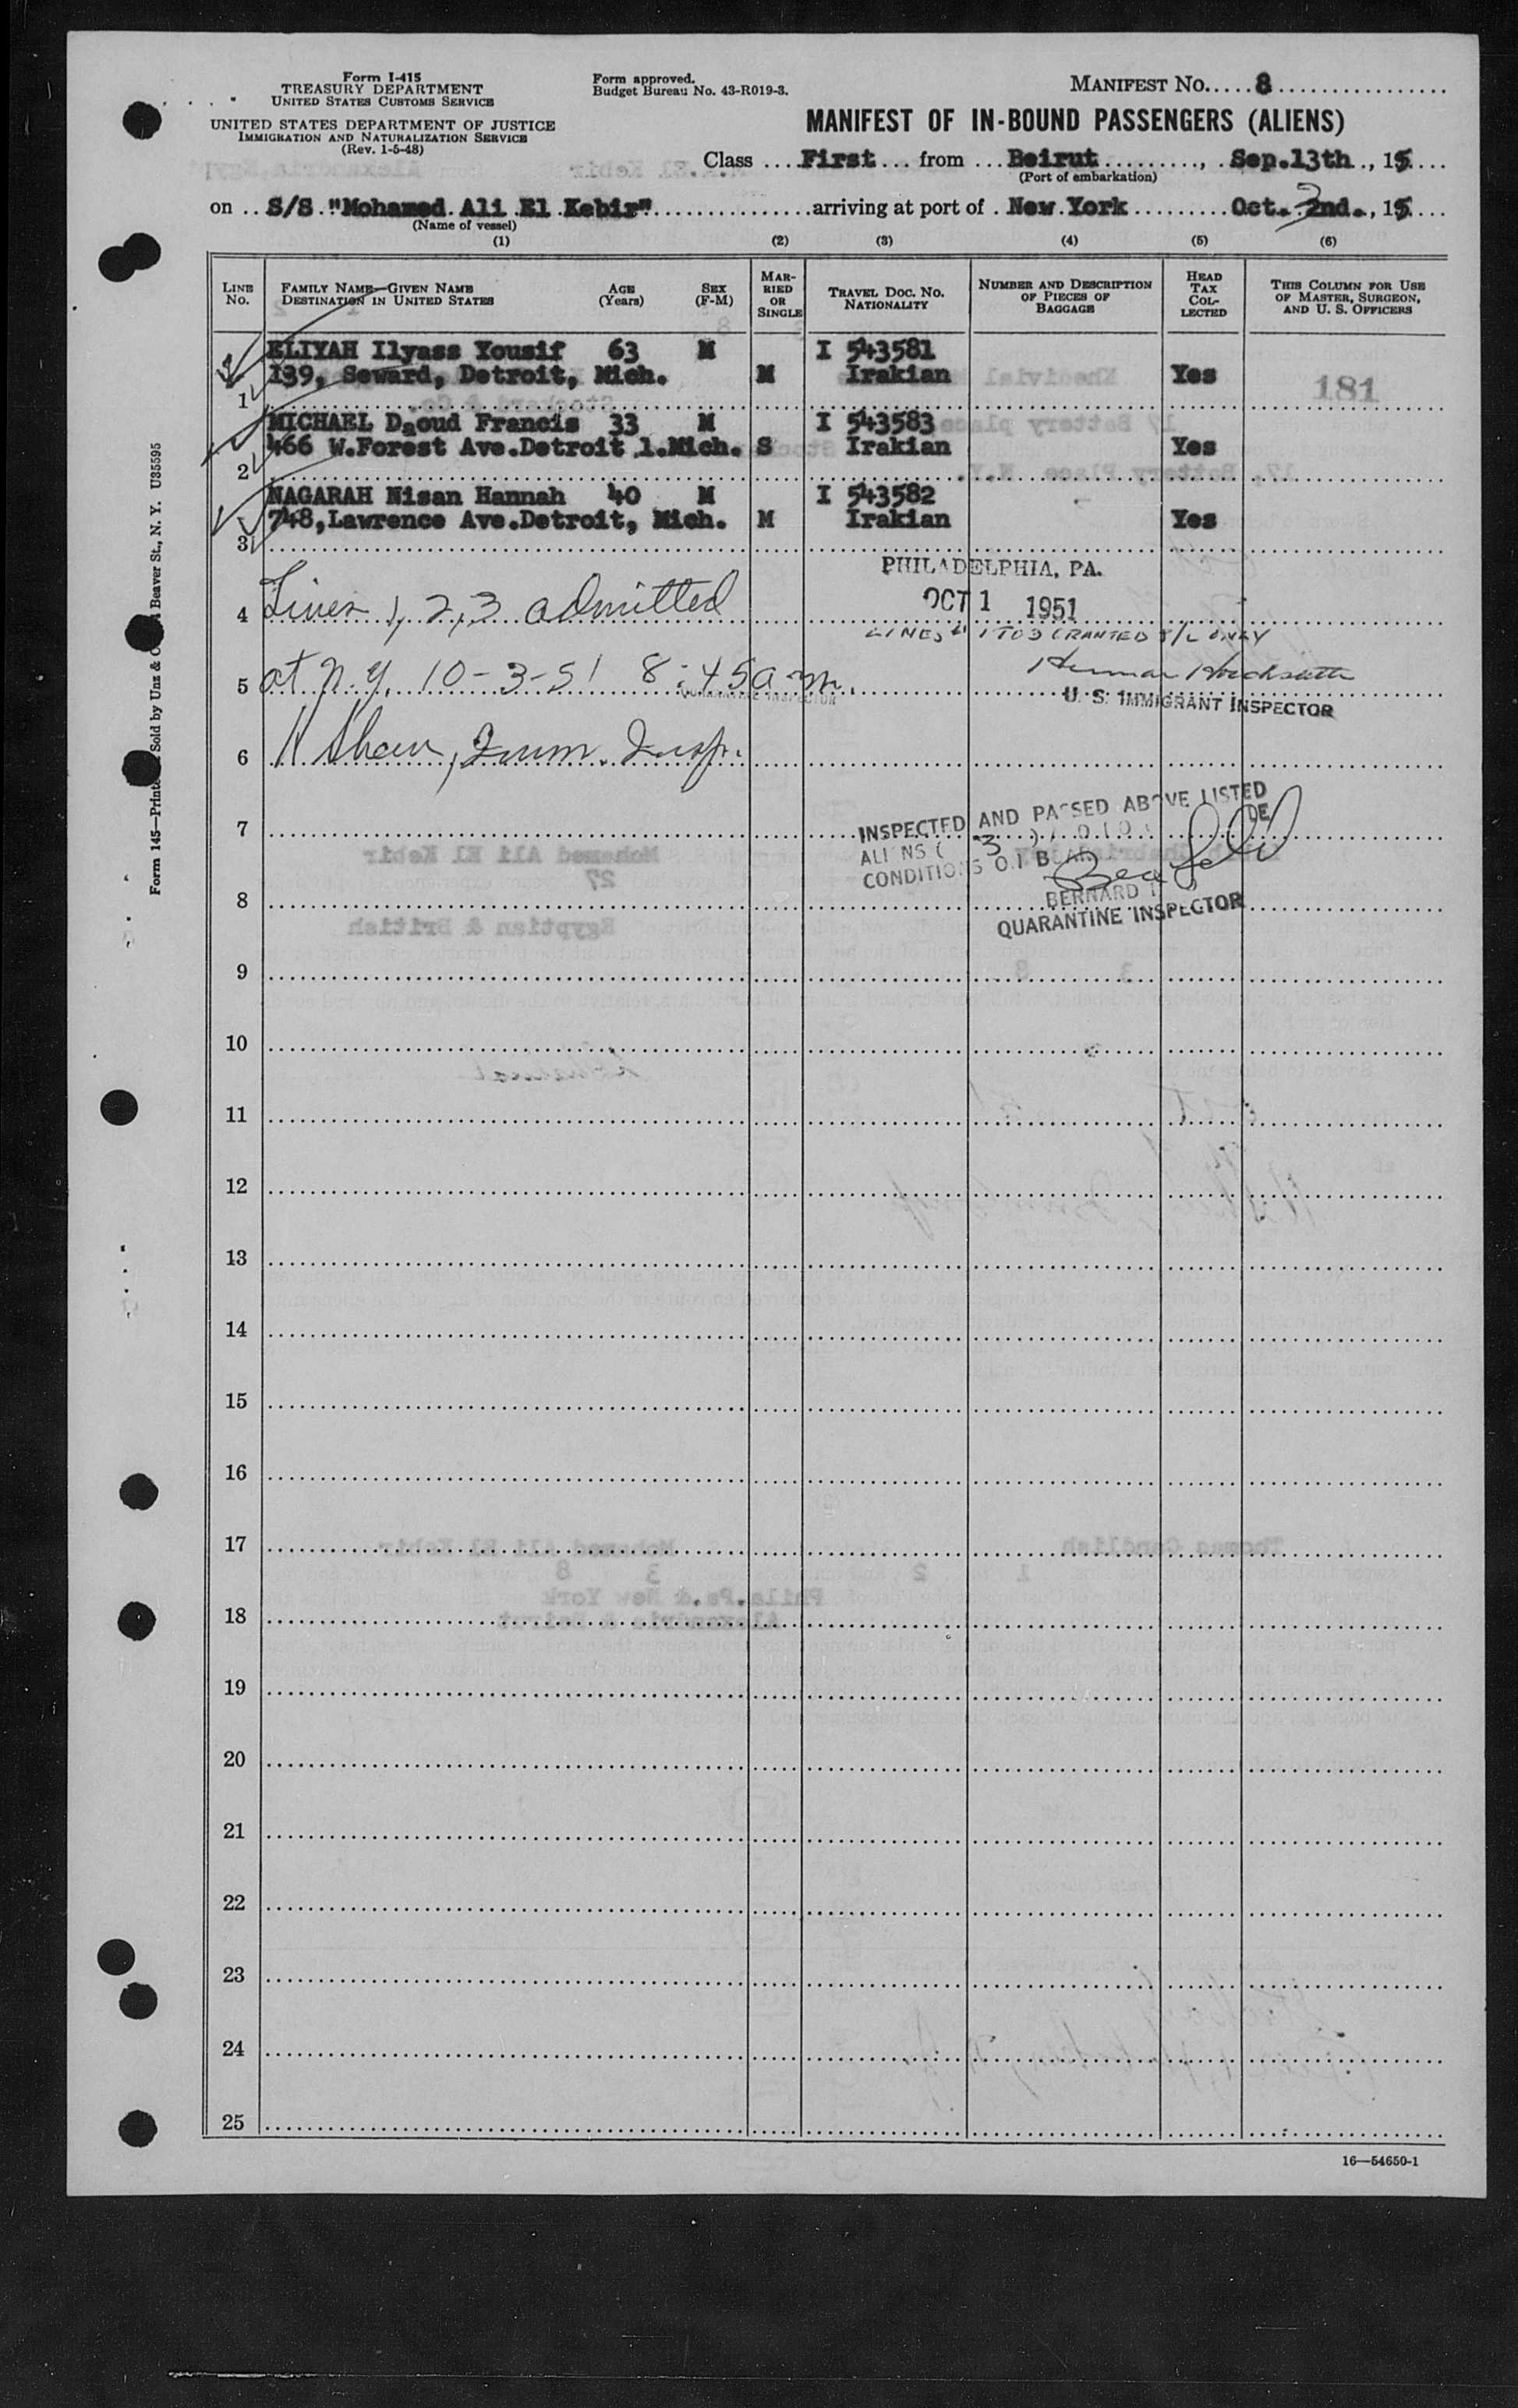 Form I-415
TREASURY DEPARTMENT
UNITED STATES CUSTOMS SERVICE
UNITED STATES DEPARTMENT OF JUSTICE
IMMIGRATION AND NATURALIZATION SERVICE
(Rev. 1-5-48)
Form approved.
Budget Bureau No. 43-R019-3.
MANIFEST No. 8
MANIFEST OF IN-BOUND PASSENGERS (ALIENS)
Class First from Beirut, Sep.13th, 15
(Port of embarkation)
on S/S "Mohamed Ali El Kebir" arriving at port of New York Oct. 2nd., 15
3
(Name of vessel)
(1) (2) (3) (4) (5) (6)
LINE No. FAMILY NAME—GIVEN NAME DESTINATION IN UNITED STATES AGE (Years) SEX (F-M) MARRIED OR SINGLE TRAVEL DOC. NO. NATIONALITY NUMBER AND DESCRIPTION OF PIECES OF BAGGAGE HEAD TAX COLLECTED THIS COLUMN FOR USE OF MASTER, SURGEON, AND U. S. OFFICERS
ELIYAH Ilyass Yousif 63 M I 543581
139, Seward, Detroit, Mich. M Irakian Yes
181
1
MICHAEL Daoud Francis 33 M I 543583
466 W.Forest Ave.Detroit 1.Mich. S Irakian Yes
2
NAGARAH Nisan Hannah 40 M I 543582
748,Lawrence Ave.Detroit, Mich. M Irakian Yes
3
PHILADELPHIA, PA.
OCT 1 1951
4 Lines 1, 2, 3 admitted
LINES 1 TO 3 GRANTED S/L ONLY
5 at N.Y. 10-3-51 8:45 a.m.
QUARANTINE INSPECTOR
U. S. IMMIGRANT INSPECTOR
6 H Shaw, Imm. Insp.
INSPECTED AND PASSED ABOVE LISTED
7
ALIENS ( 3 )
CONDITIONS
BERNARD
8
QUARANTINE INSPECTOR
9
10
11
12
13
14
15
16
17
18
19
20
21
22
23
24
25
16—54650-1
Form 145—Printed Sold by Unz & Beaver St., N. Y. U35595